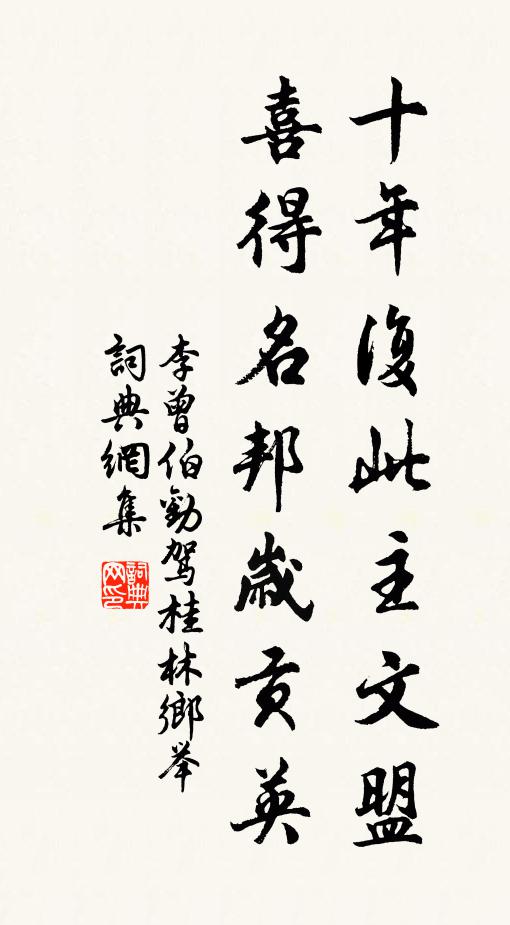 十年復此主文盟
喜得名邦歲貢英
李曾伯勸駕桂林鄉举
詞典網集
詞典网印